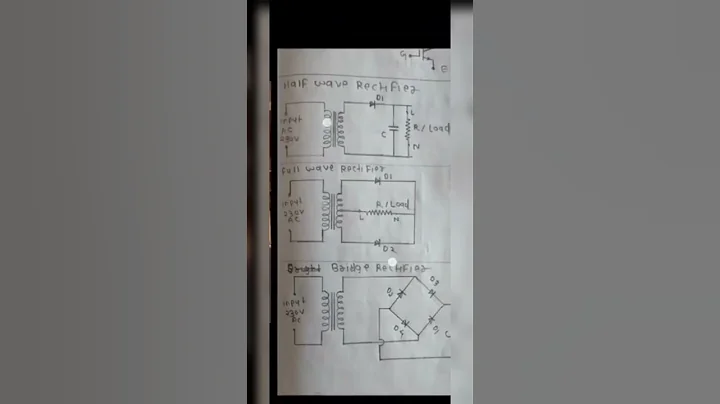 G
E
Half wave Rectifier
D1
L
input
AC
230V
C
R/Load
N
Full wave Rectifier
D1
input
230V
AC
R/Load
L
N
D2
Bridge Rectifier
D3
input
230V
AC